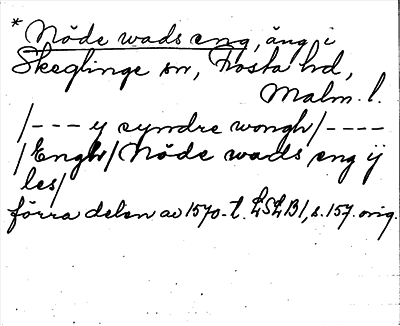 * Nöde wads eng, äng i
Skeglinge sn, Frosta hd,
Malm. l.
/--- y syndre wongh/----
/Engh/ Nöde wads eng ÿ
les/
förra delen av 1570-t. LSLB1, s. 157. orig.